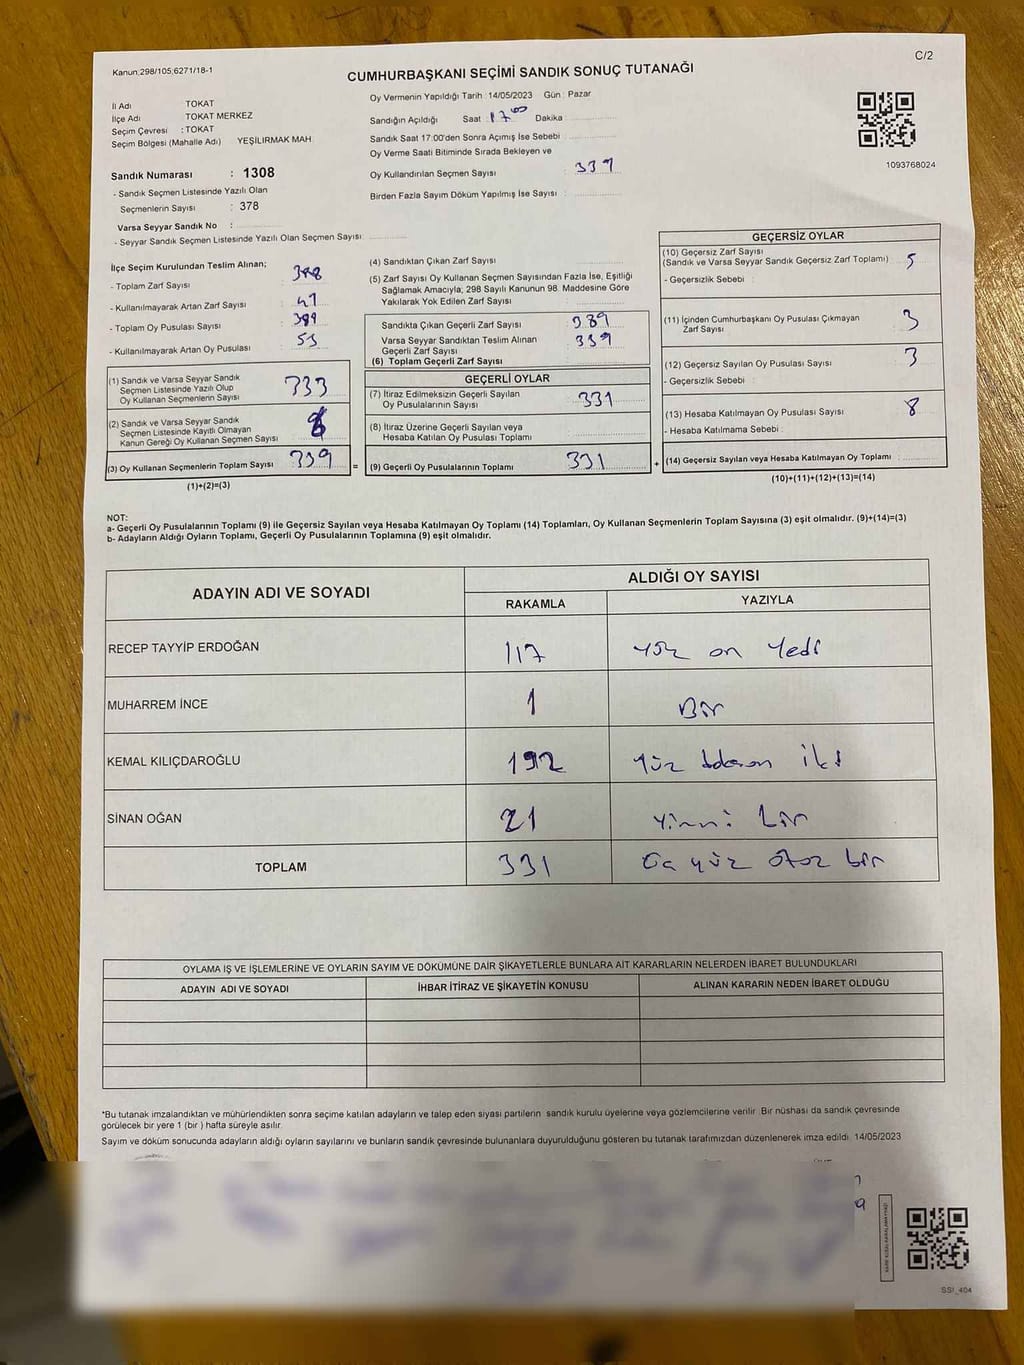 Kanun;298/105;6271/18-1
C/2
CUMHURBAŞKANI SEÇİMİ SANDIK SONUÇ TUTANAĞI
İl Adı TOKAT
İlçe Adı TOKAT MERKEZ
Seçim Çevresi : TOKAT
Seçim Bölgesi (Mahalle Adı) YEŞİLIRMAK MAH
Sandık Numarası : 1308
- Sandık Seçmen Listesinde Yazılı Olan
Seçmenlerin Sayısı : 378
Varsa Seyyar Sandık No :
- Seyyar Sandık Listesinde Yazılı Olan Seçmen Sayısı:
Oy Vermenin Yapıldığı Tarih :14/05/2023 Gün : Pazar
Sandığın Açıldığı Saat : 17 00 Dakika
Sandık Saat 17:00'den Sonra Açımış İse Sebebi
Oy Verme Saati Bitiminde Sırada Bekleyen ve
Oy Kullandırılan Seçmen Sayısı : 339
Birden Fazla Sayım Döküm Yapılmış İse Sayısı :
1093768024
İlçe Seçim Kurulundan Teslim Alınan;
- Toplam Zarf Sayısı : 388
- Kullanılmayarak Artan Zarf Sayısı : 47
- Toplam Oy Pusulası Sayısı : 389
- Kullanılmayarak Artan Oy Pusulası : 53
(1) Sandık ve Varsa Seyyar Sandık
Seçmen Listesinde Yazılı Olup
Oy Kullanan Seçmenlerin Sayısı 333
(2) Sandık ve Varsa Seyyar Sandık
Seçmen Listesinde Kayıtlı Olmayan
Kanun Gereği Oy Kullanan Seçmen Sayısı
(3) Oy Kullanan Seçmenlerin Toplam Sayısı 339
(1)+(2)=(3)
(4) Sandıktan Çıkan Zarf Sayısı :
(5) Zarf Sayısı Oy Kullanan Seçmen Sayısından Fazla İse, Eşitliği
Sağlamak Amacıyla; 298 Sayılı Kanunun 98. Maddesine Göre
Yakılarak Yok Edilen Zarf Sayısı :
Sandıkta Çıkan Geçerli Zarf Sayısı : 339
Varsa Seyyar Sandıktan Teslim Alınan
Geçerli Zarf Sayısı : 339
(6) Toplam Geçerli Zarf Sayısı
GEÇERLİ OYLAR
(7) İtiraz Edilmeksizin Geçerli Sayılan
Oy Pusulalarının Sayısı : 331
(8) İtiraz Üzerine Geçerli Sayılan veya
Hesaba Katılan Oy Pusulası Toplamı
= (9) Geçerli Oy Pusulalarının Toplamı 331
GEÇERSİZ OYLAR
(10) Geçersiz Zarf Sayısı
(Sandık ve Varsa Seyyar Sandık Geçersiz Zarf Toplamı) : 5
- Geçersizlik Sebebi :
(11) İçinden Cumhurbaşkanı Oy Pusulası Çıkmayan
Zarf Sayısı 3
(12) Geçersiz Sayılan Oy Pusulası Sayısı 3
- Geçersizlik Sebebi :
(13) Hesaba Katılmayan Oy Pusulası Sayısı 8
- Hesaba Katılmama Sebebi :
+ (14) Geçersiz Sayılan veya Hesaba Katılmayan Oy Toplamı :
(10)+(11)+(12)+(13)=(14)
NOT:
a- Geçerli Oy Pusulalarının Toplamı (9) ile Geçersiz Sayılan veya Hesaba Katılmayan Oy Toplamı (14) Toplamları, Oy Kullanan Seçmenlerin Toplam Sayısına (3) eşit olmalıdır. (9)+(14)=(3)
b- Adayların Aldığı Oyların Toplamı, Geçerli Oy Pusulalarının Toplamına (9) eşit olmalıdır.
ADAYIN ADI VE SOYADI
ALDIĞI OY SAYISI
RAKAMLA YAZIYLA
RECEP TAYYİP ERDOĞAN 117 yüz on yedi
MUHARREM İNCE 1 Bir
KEMAL KILIÇDAROĞLU 192 yüz doksan iki
SİNAN OĞAN 21 yirmi bir
TOPLAM 331 Üç yüz otuz bir
OYLAMA İŞ VE İŞLEMLERİNE VE OYLARIN SAYIM VE DÖKÜMÜNE DAİR ŞİKAYETLERLE BUNLARA AİT KARARLARIN NELERDEN İBARET BULUNDUKLARI
ADAYIN ADI VE SOYADI İHBAR İTİRAZ VE ŞİKAYETİN KONUSU ALINAN KARARIN NEDEN İBARET OLDUĞU
*Bu tutanak imzalandıktan ve mühürlendikten sonra seçime katılan adayların ve talep eden siyasi partilerin sandık kurulu üyelerine veya gözlemcilerine verilir. Bir nüshası da sandık çevresinde
görülecek bir yere 1 (bir ) hafta süreyle asılır.
Sayım ve döküm sonucunda adayların aldığı oyların sayılarını ve bunların sandık çevresinde bulunanlara duyurulduğunu gösteren bu tutanak tarafımızdan düzenlenerek imza edildi. 14/05/2023
SSI_404